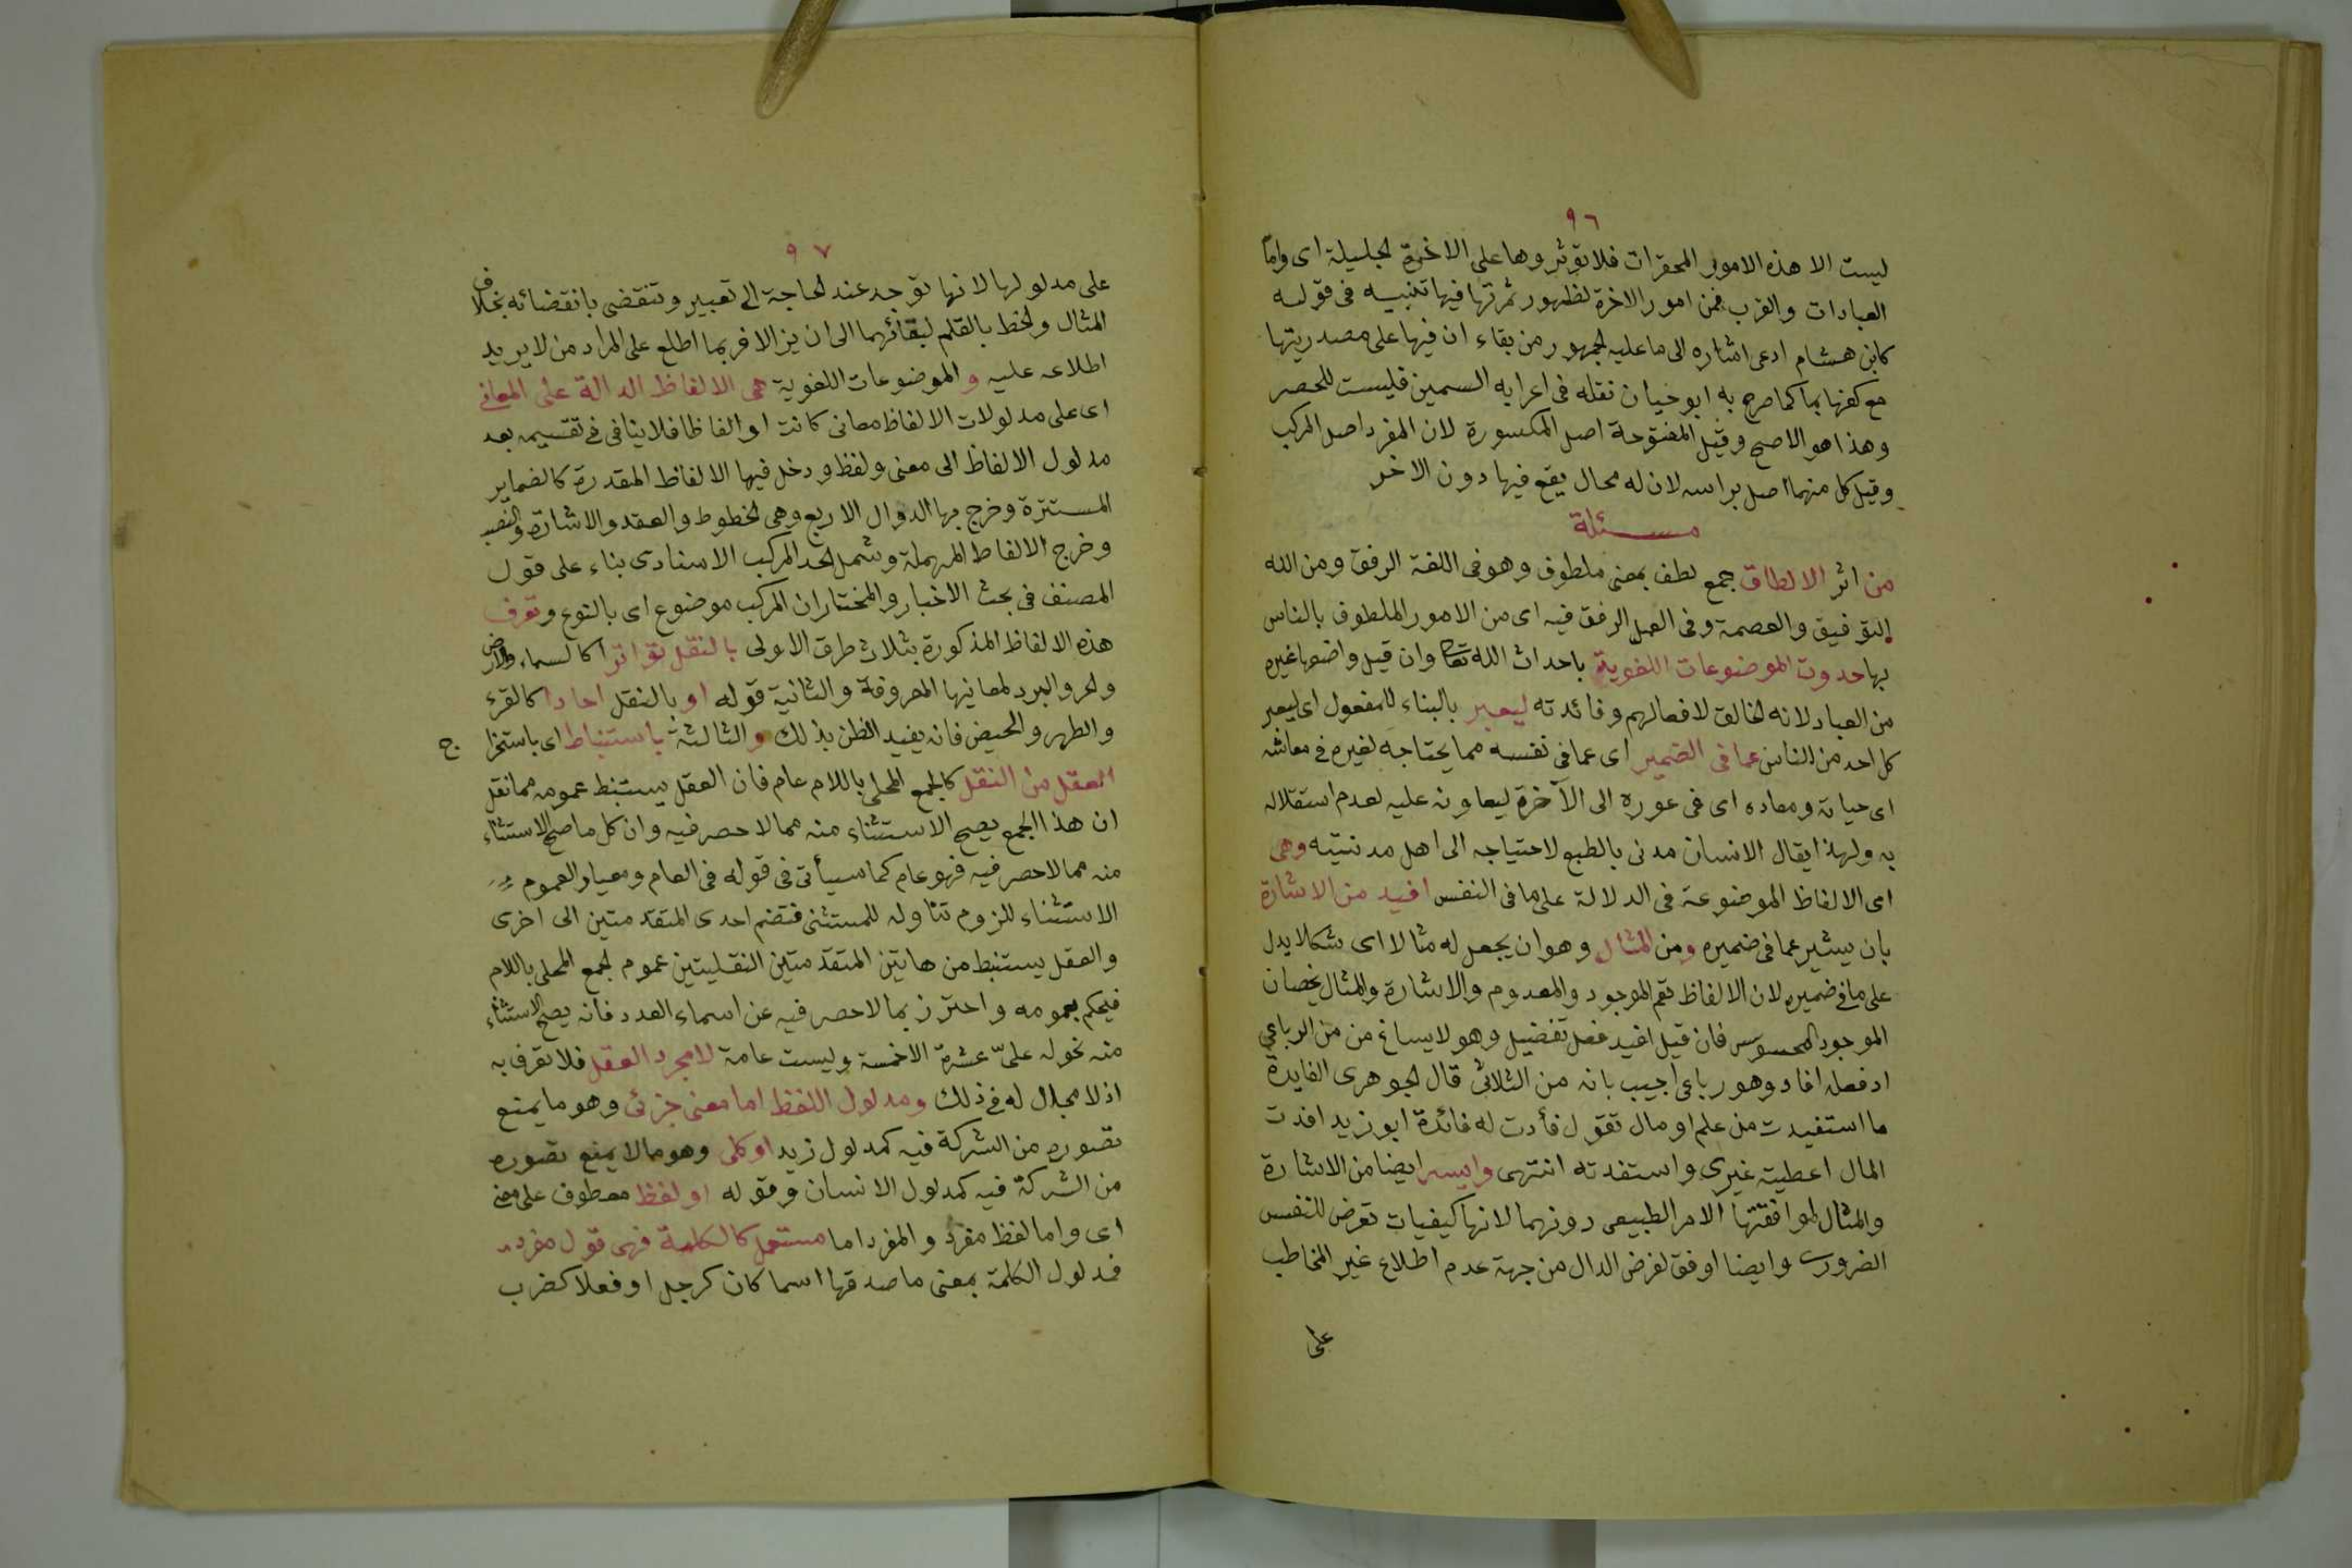 ٩٦
ليست الا هذه الامور المحقرات فلا تؤثروها على الاخرة الجليلة اى واما
العبادات والقرب فمن امور الاخرة لظهور ثمرتها فيها تنبيه فى قوله
كابن هشام ادعى اشاره الى ما عليه الجمهور من بقاء ان فيها على مصدريتها
مع كفها بما كما صرح به ابو حيان نقله فى اعرابه السمين فليست للحصر
وهذا هو الاصح وقيل المفتوحة اصل المكسورة لان المفرد اصل المركب
وقيل كل منهما اصل براسه لان له محال يقع فيها دون الاخر
مسئلة
من اثر الالطاف جمع لطف بمعنى ملطوف وهو فى اللغة الرفق ومن الله
التوفيق والعصمة وفى العمل الرفق فيه اى من الامور الملطوف بالناس
بها حدوث الموضوعات اللغوية باحداث الله تعا وان قيل واضعها غيره
من العباد لانه الخالق لافعالهم وفائدته ليعبر بالبناء للمفعول اى ليعبر
كل احد من الناس عما فى الضمير اى عما فى نفسه مما يحتاجه لغيره فى معاشه
اى حياته ومعاده اى فى عوده الى الآخرة ليعاونه عليه لعدم استقلاله
به ولهذا يقال الانسان مدنى بالطبع لاحتياجه الى اهل مدنتيه وهى
اى الالفاظ الموضوعة فى الدلالة على ما فى النفس افيد من الاشارة
بان يشير عما فى ضميره ومن المثال وهو ان يجعل له مثالا اى شكلا يدل
على ما فى ضميره لان الالفاظ تعم الموجود والمعدوم والاشارة والمثال يخصان
الموجود المحسوس فان قيل افيد فعل تفضيل وهو لا يساغ من من الرباعي
اذ فعله افاد وهو رباعى اجيب بانه من الثلاثى قال الجوهرى الفايدة
ما استفيدت من علم او مال تقول فأدت له فائدة ابو زيد افدت
المال اعطيته غيرى واستفدته انتهى وايسر ايضا من الاشارة
والمثال لموافقتها الامر الطبيعى دونهما لانها كيفيات تعرض للنفس
الضرورى وايضا اوفق لغرض الدال من جهة عدم اطلاع غير المخاطب
على
٩٧
على مدلولها لانها توجد عند الحاجة الى تعبير وتنقضى بانقضائه بخلاف
المثال والخط بالقلم لبقائهما الى ان يزالا فربما اطلع على المراد من لا يريد
اطلاعه عليه و الموضوعات اللغوية هى الالفاظ الدالة على المعانى
اى على مدلولات الالفاظ معانى كانت او الفاظا فلا ينافى فى تقسيمه بعد
مدلول الالفاظ الى معنى ولفظ ودخل فيها الالفاظ المقدرة كالضماير
المستترة وخرج بها الدوال الاربع وهى الخطوط والعقد والاشارة والنصب
وخرج الالفاظ المهملة وشمل الحد المركب الاسنادى بناء على قول
المصنف فى بحث الاخبار والمختار ان المركب موضوع اى بالنوع وتعرف
هذه الالفاظ المذكورة بثلاث طرق الاولى بالنقل تواترا كالسماء والارض
والحر والبرد لمعانيها المعروفة والثانية قوله او بالنقل احادا كالقرء
والطهر والحيض فانه يفيد الظن بذلك والثالثة باستنباط اى باستخرا ج
العقل من النقل كالجمع المحلى باللام عام فان العقل يستنبط عمومه مما نقل
ان هذا الجمع يصح الاستثناء منه مما لا حصر فيه وان كل ما صح الاستثناء
منه مما لا حصر فيه فهو عام كما سيأتى فى قوله فى العام ومعيار العموم
الاستثناء للزوم تناوله للمستثنى فتضم احدى المتقدمتين الى اخرى
والعقل يستنبط من هاتين المتقدمتين النقليتين عموم الجمع المحلى باللام
فيحكم بعمومه واحترز بما لا حصر فيه عن اسماء العدد فانه يصح الاستثناء
منه نحو له علىّ عشرة الا خمسة وليست عامة لا مجرد العقل فلا تعرف به
اذ لا مجال له فى ذلك ومدلول اللفظ اما معنى جزئى وهو ما يمنع
تصوره من الشركة فيه كمدلول زيد او كلى وهو ما لا يمنع تصوره
من الشركة فيه كمدلول الانسان وقوله او لفظ معطوف على معنى
اى واما لفظ مفرد والمفرد اما مستعمل كالكلمة فهى قول مفرد
فمدلول الكلمة بمعنى ما صدقها اسما كان كرجل او فعلا كضرب